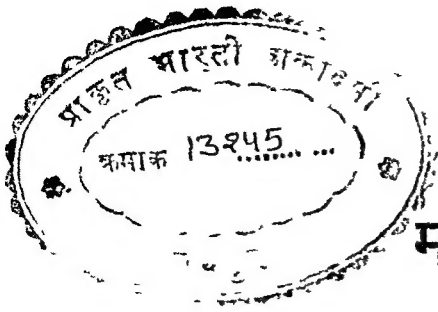 प्राकृत भारती अकादमी
क्रमाक 13245